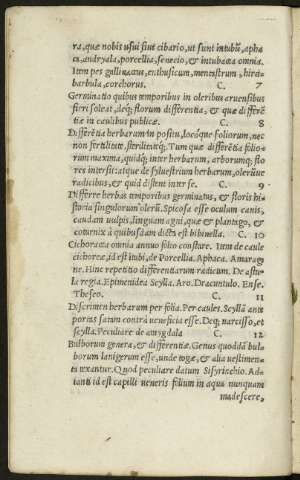 ra, quæ nobis usui siue cibario, ut sunt intubũ, apha
ca, andryala, porcellia, senecio, et intubacea omnia.
Item pes gallinaceus, enthuscum, menestrum, hirci
barbula, corchorus. C. 7
Germinatio quibus temporibus in oleribus aruensibus
fieri soleat, deq; florum differentia, & quæ differẽ
tiæ in caulibus publicæ. C. 8
Differẽtia herbarum in positu, locóque foliorum, nec
non fertilitate, sterilitatéq;. Tum quæ differẽtia folio
rum maxima, quidq; inter herbarum, arborumq; flo
res intersit: atque de syluestrium herbarum, olerũue
radicibus, & quid distent inter se. C. 9
Differre herbas temporibus germinatus, & floris hi
storia singulorum olerũ. Spicosa esse oculum canis,
caudam uulpis, linguam agni, quæ & plantago, &
coturnix à quibusdam dicta est bibinella. C. 10
Cichoracea omnia annuo folio constare. Item de caule
cichoreæ, id est intubi, de Porcellia. Aphaca. Amaragi
ne. Hinc repetitio differentiarum radicum. De astu
la regia. Epimenidea Scylla. Aro. Dracunculo. Ense.
Theseo. C. 11
Discrimen herbarum per folia. Per caules. Scyllã ante
portas satam contrà ueneficia esse. Deq; narcisso, et
scylla. Peculiare de amygdala C. 12
Bulborum genera, & differẽtiæ. Genus quoddã bul
borum lanigerum esse, unde togæ, & alia uestimen
ta texantur. Quod peculiare datum Sisyrinchio. Ad
ianti id est capilli ueneris folium in aqua nunquam
madescere,